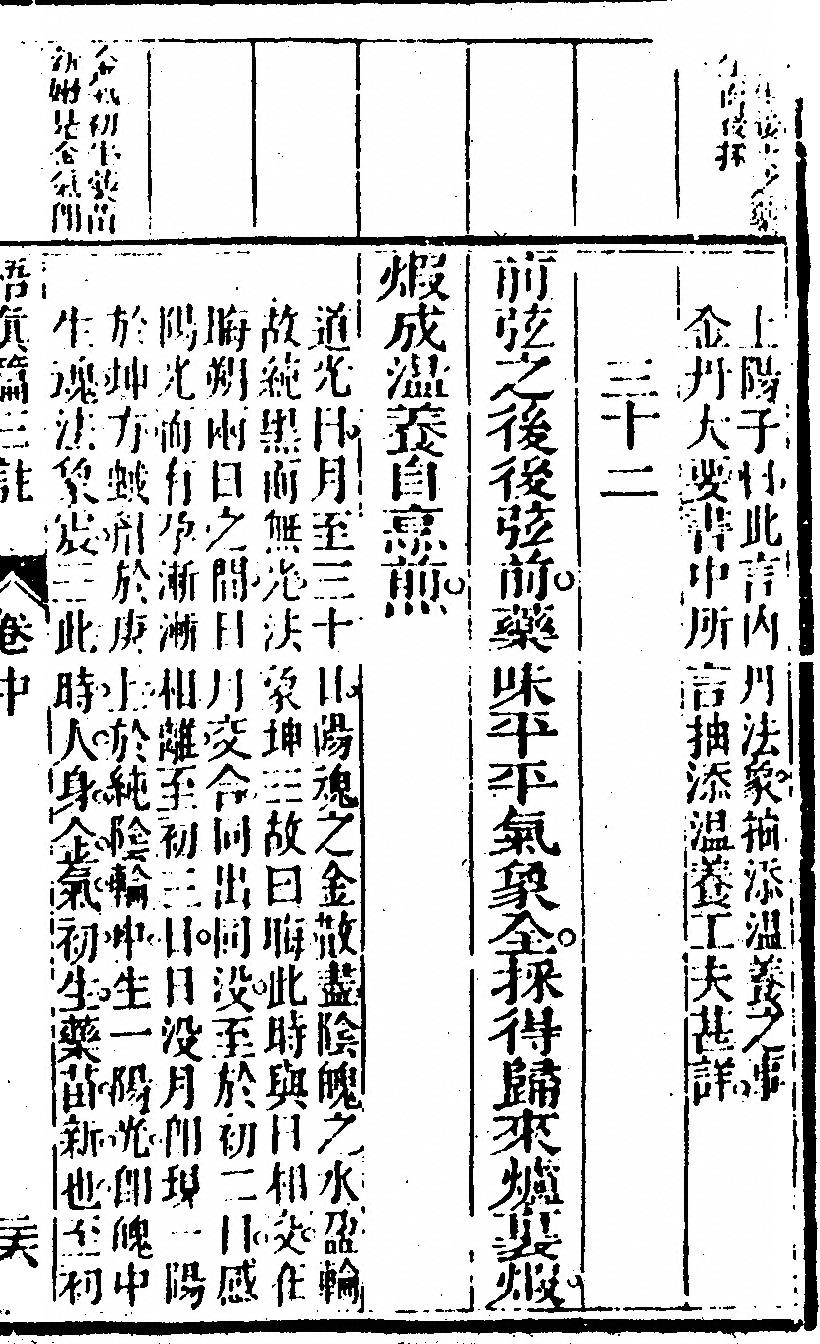 上陽子曰此言內丹法象抽添溫養之事
金丹大要書中所言抽添溫養工夫甚詳
三十二
前弦之後後弦前藥味平平氣象全採得歸來爐裏煆
煆成溫養自烹煎
道光曰月至三十日陽魂之金散盡陰魄之水盈輪
故純黑而無光法象坤三故曰晦此時與日相交在
晦朔兩日之間日月交合同出同沒至於初二日感
陽光而有孕漸漸相離至初三日日沒月即現一陽
於坤方蛾眉於庚上於純陰輪中生一陽光即魄中
生魂法象震三此時人身金氣初生藥苗新也至初
悟真篇三註 卷中 二六
金氣初生藥苗
新嫩是金氣即